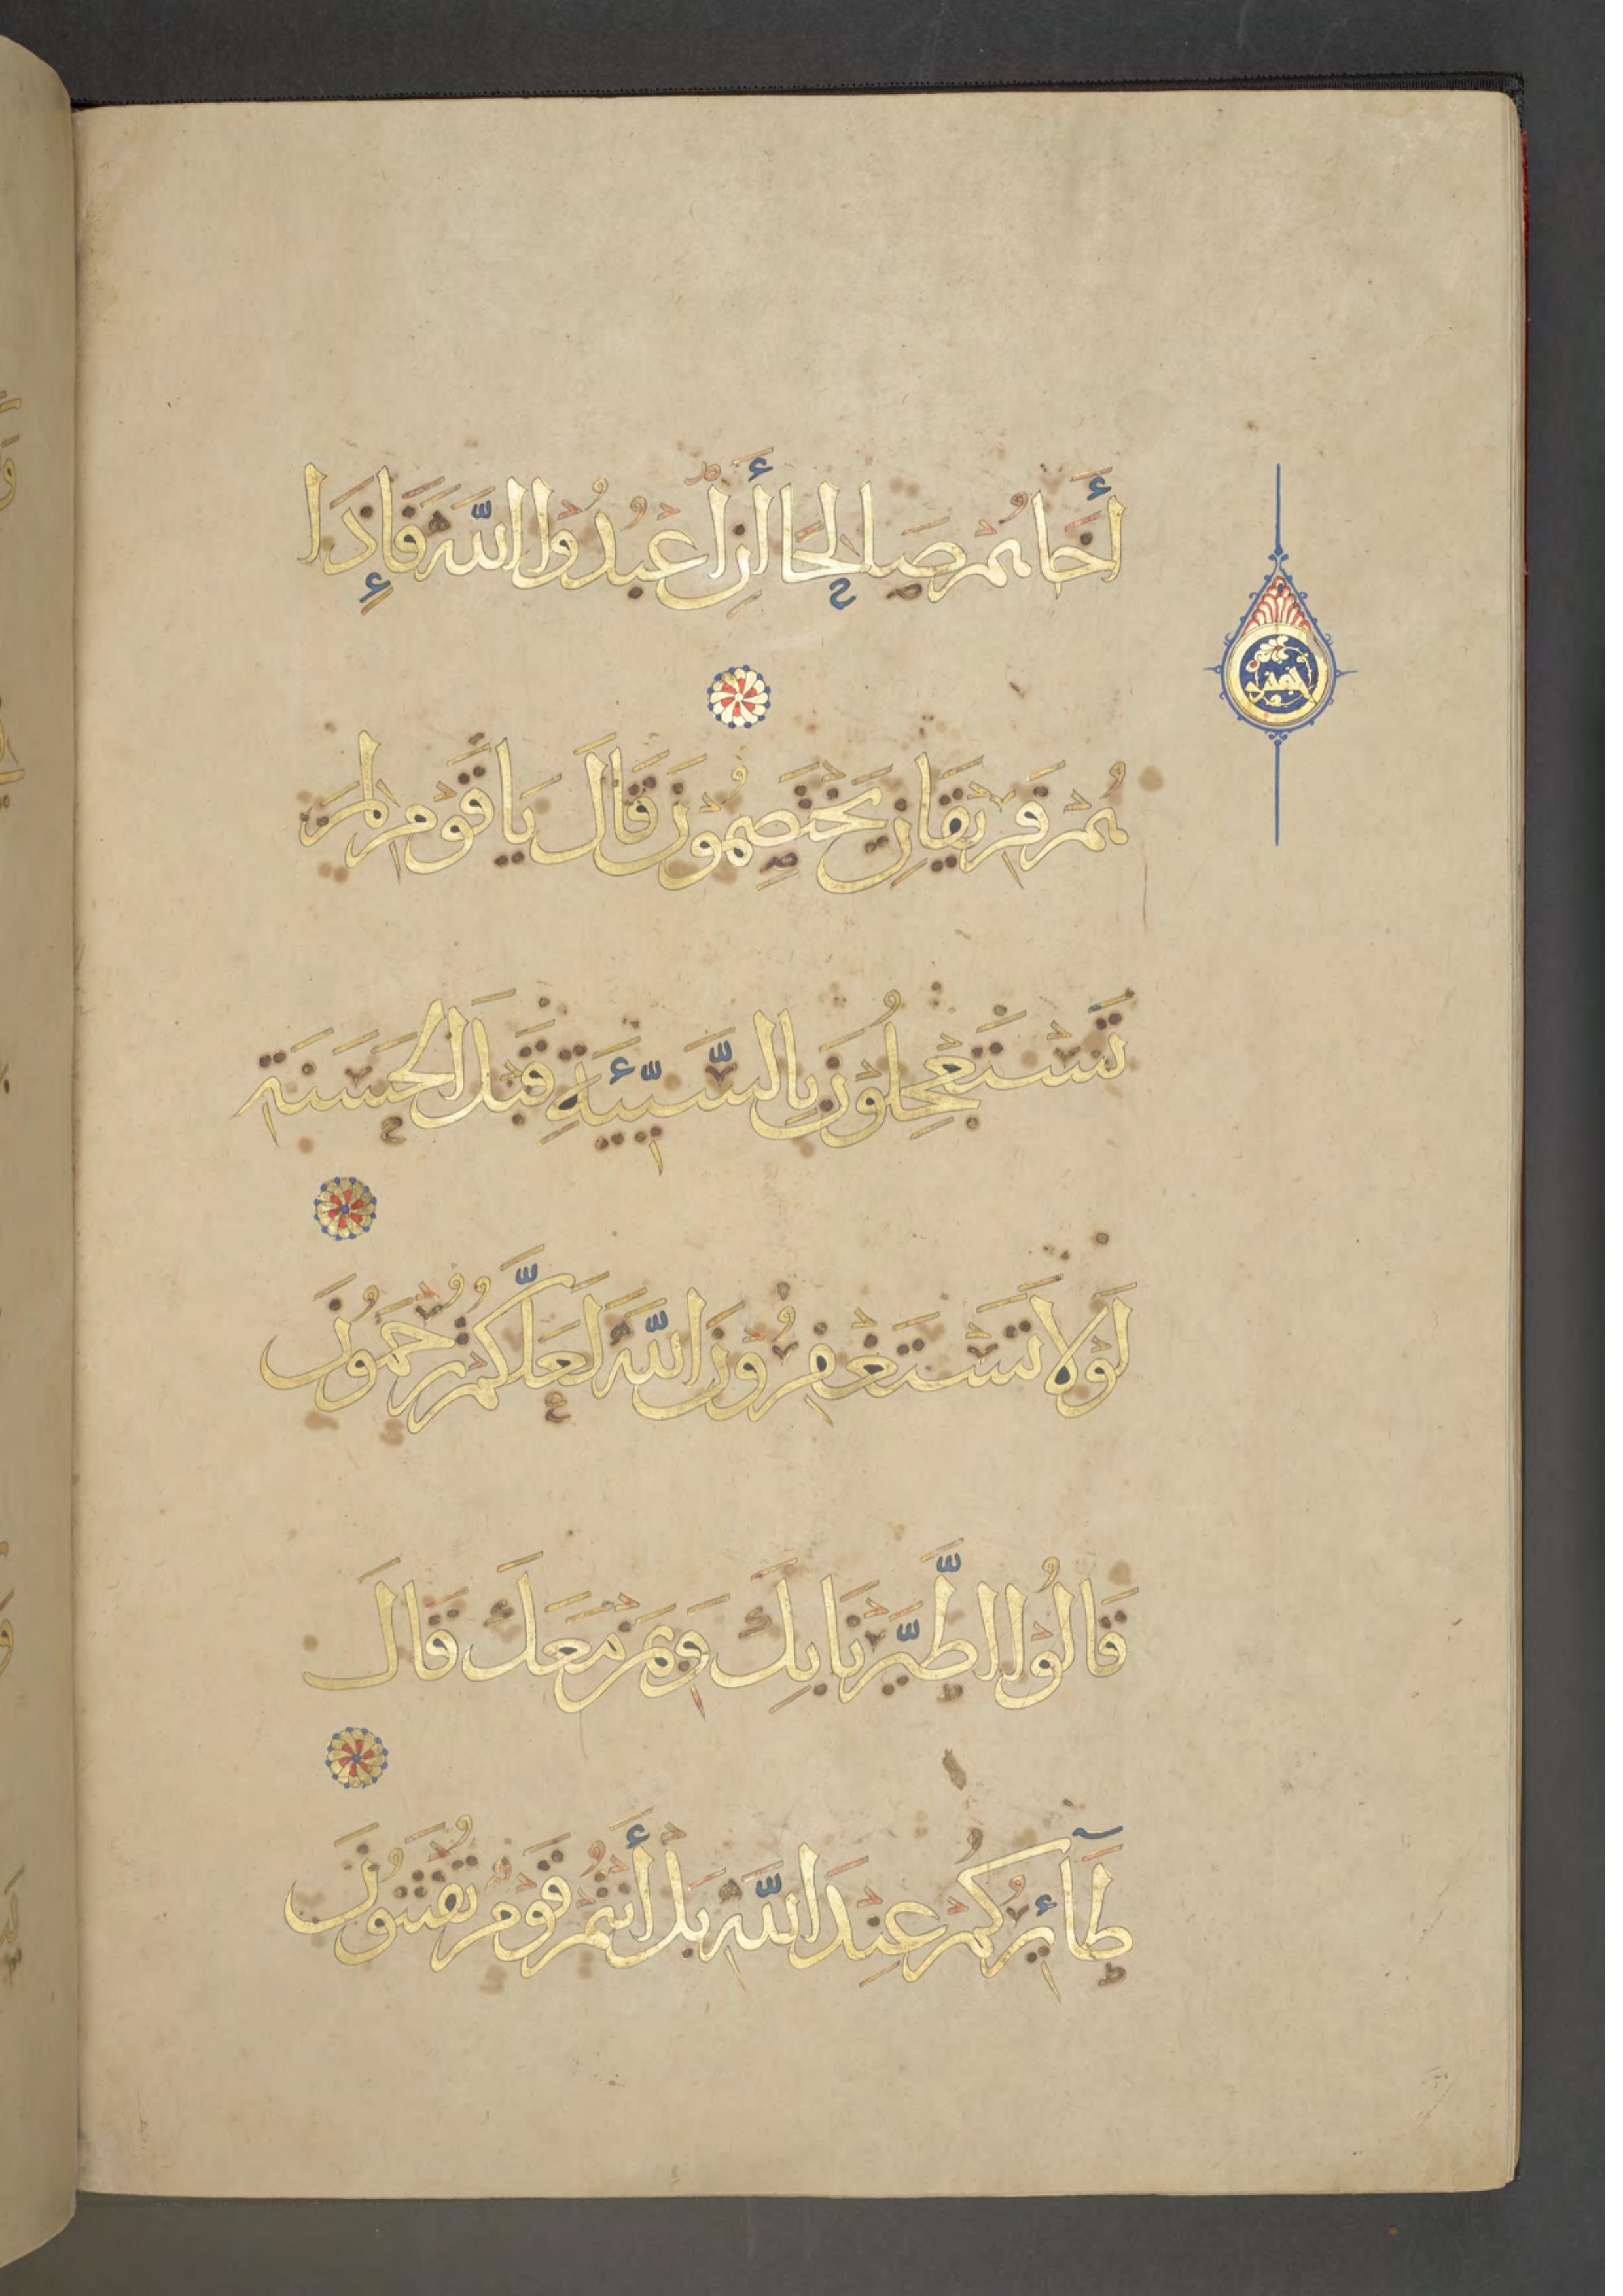 أَخَاهُمْ صَالِحًا أَنِ اعْبُدُوا اللَّهَ فَإِذَا
هُمْ فَرِيقَانِ يَخْتَصِمُونَ قَالَ يَا قَوْمِ لِمَ
تَسْتَعْجِلُونَ بِالسَّيِّئَةِ قَبْلَ الْحَسَنَةِ
لَوْلَا تَسْتَغْفِرُونَ اللَّهَ لَعَلَّكُمْ تُرْحَمُونَ
قَالُوا اطَّيَّرْنَا بِكَ وَبِمَنْ مَعَكَ قَالَ
طَآئِرُكُمْ عِنْدَ اللَّهِ بَلْ أَنْتُمْ قَوْمٌ تُفْتَنُونَ